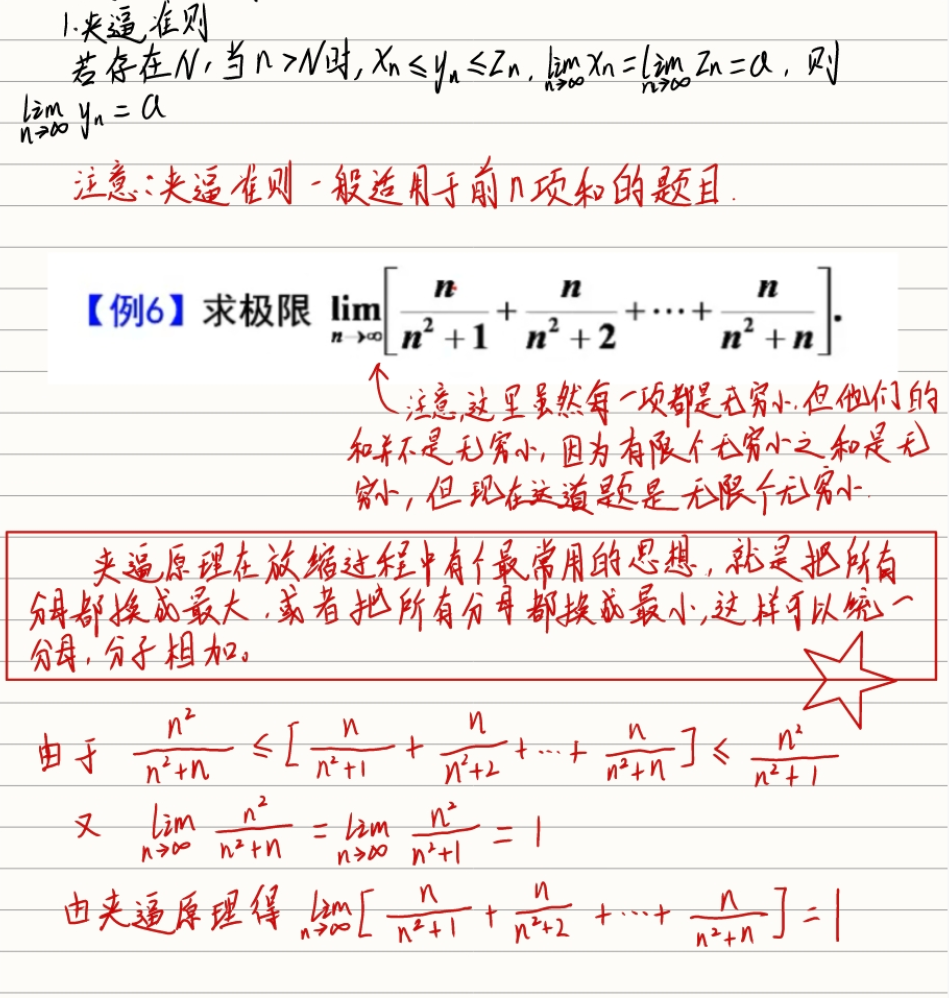 1.夹逼准则
若存在N,当n>N时,xₙ≤yₙ≤zₙ,lim(n→∞)xₙ=lim(n→∞)zₙ=a,则
lim(n→∞)yₙ=a
注意:夹逼准则一般适用于前n项和的题目.
【例6】求极限 lim(n→∞)[n/(n²+1)+n/(n²+2)+⋯+n/(n²+n)].
注意,这里虽然每一项都是无穷小,但他们的
和并不是无穷小,因为有限个无穷小之和是无
穷小,但现在这道题是无限个无穷小.
夹逼原理在放缩过程中有个最常用的思想,就是把所有
分母都换成最大,或者把所有分母都换成最小,这样可以统一
分母,分子相加。
由于 n²/(n²+n)≤[n/(n²+1)+n/(n²+2)+⋯+n/(n²+n)]≤n²/(n²+1)
又 lim(n→∞) n²/(n²+n)=lim(n→∞) n²/(n²+1)=1
由夹逼原理得 lim(n→∞)[n/(n²+1)+n/(n²+2)+⋯+n/(n²+n)]=1